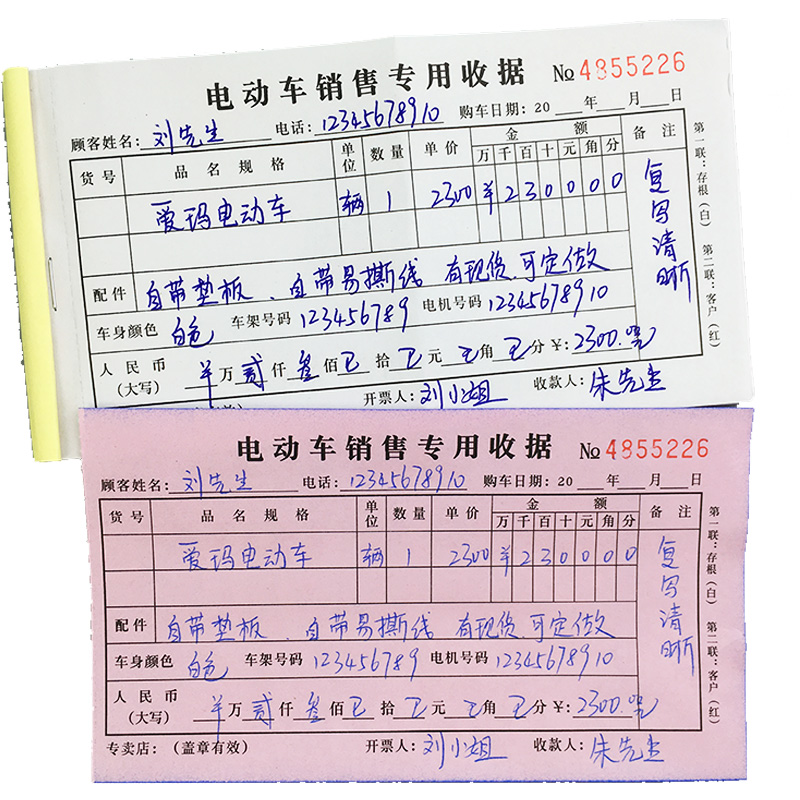 电动车销售专用收据 № 4855226
顾客姓名：刘先生 电话：12345678910 购车日期：20 年 月 日
货号 品名规格 单位 数量 单价 金额 备注
万 千 百 十 元 角 分
爱玛电动车 辆 1 2300 ¥ 2 3 0 0 0 0 复写清晰
配件 自带垫板、自带易撕线 有现货、可定做
车身颜色 白色 车架号码 123456789 电机号码 12345678910
人民币（大写） 羊万贰仟叁佰 拾 元 角 分 ¥：2300.00
开票人：刘小姐 收款人：朱先生
第一联：存根（白） 第二联：客户（红）
电动车销售专用收据 № 4855226
顾客姓名：刘先生 电话：12345678910 购车日期：20 年 月 日
货号 品名规格 单位 数量 单价 金额 备注
万 千 百 十 元 角 分
爱玛电动车 辆 1 2300 ¥ 2 3 0 0 0 0 复写清晰
配件 自带垫板、自带易撕线 有现货、可定做
车身颜色 白色 车架号码 123456789 电机号码 12345678910
人民币（大写） 羊万贰仟叁佰 拾 元 角 分 ¥：2300.00
专卖店：（盖章有效） 开票人：刘小姐 收款人：朱先生
第一联：存根（白） 第二联：客户（红）